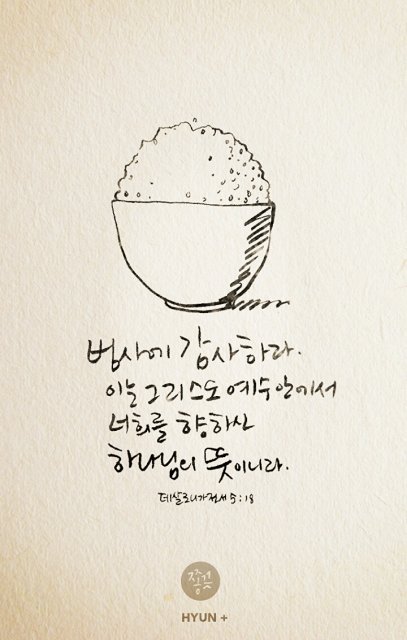 범사에 감사하라.
이는 그리스도 예수 안에서
너희를 향하신
하나님의 뜻이니라.
데살로니가전서 5:18
좋은것
HYUN +